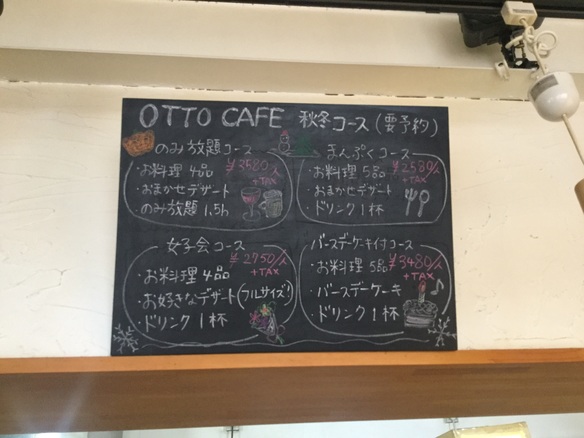 OTTO CAFE 秋冬コース(要予約)
のみ放題コース
・お料理 4品 ¥3580/人
+TAX
・おまかせデザート
・のみ放題 1.5h
まんぷくコース
・お料理 5品 ¥2580/人
+TAX
・おまかせデザート
・ドリンク 1杯
女子会コース
¥2750/人
+TAX
・お料理 4品
・お好きなデザート(フルサイズ!)
・ドリンク 1杯
バースデーケーキ付コース
・お料理 5品 ¥3480/人
+TAX
・バースデーケーキ
・ドリンク 1杯